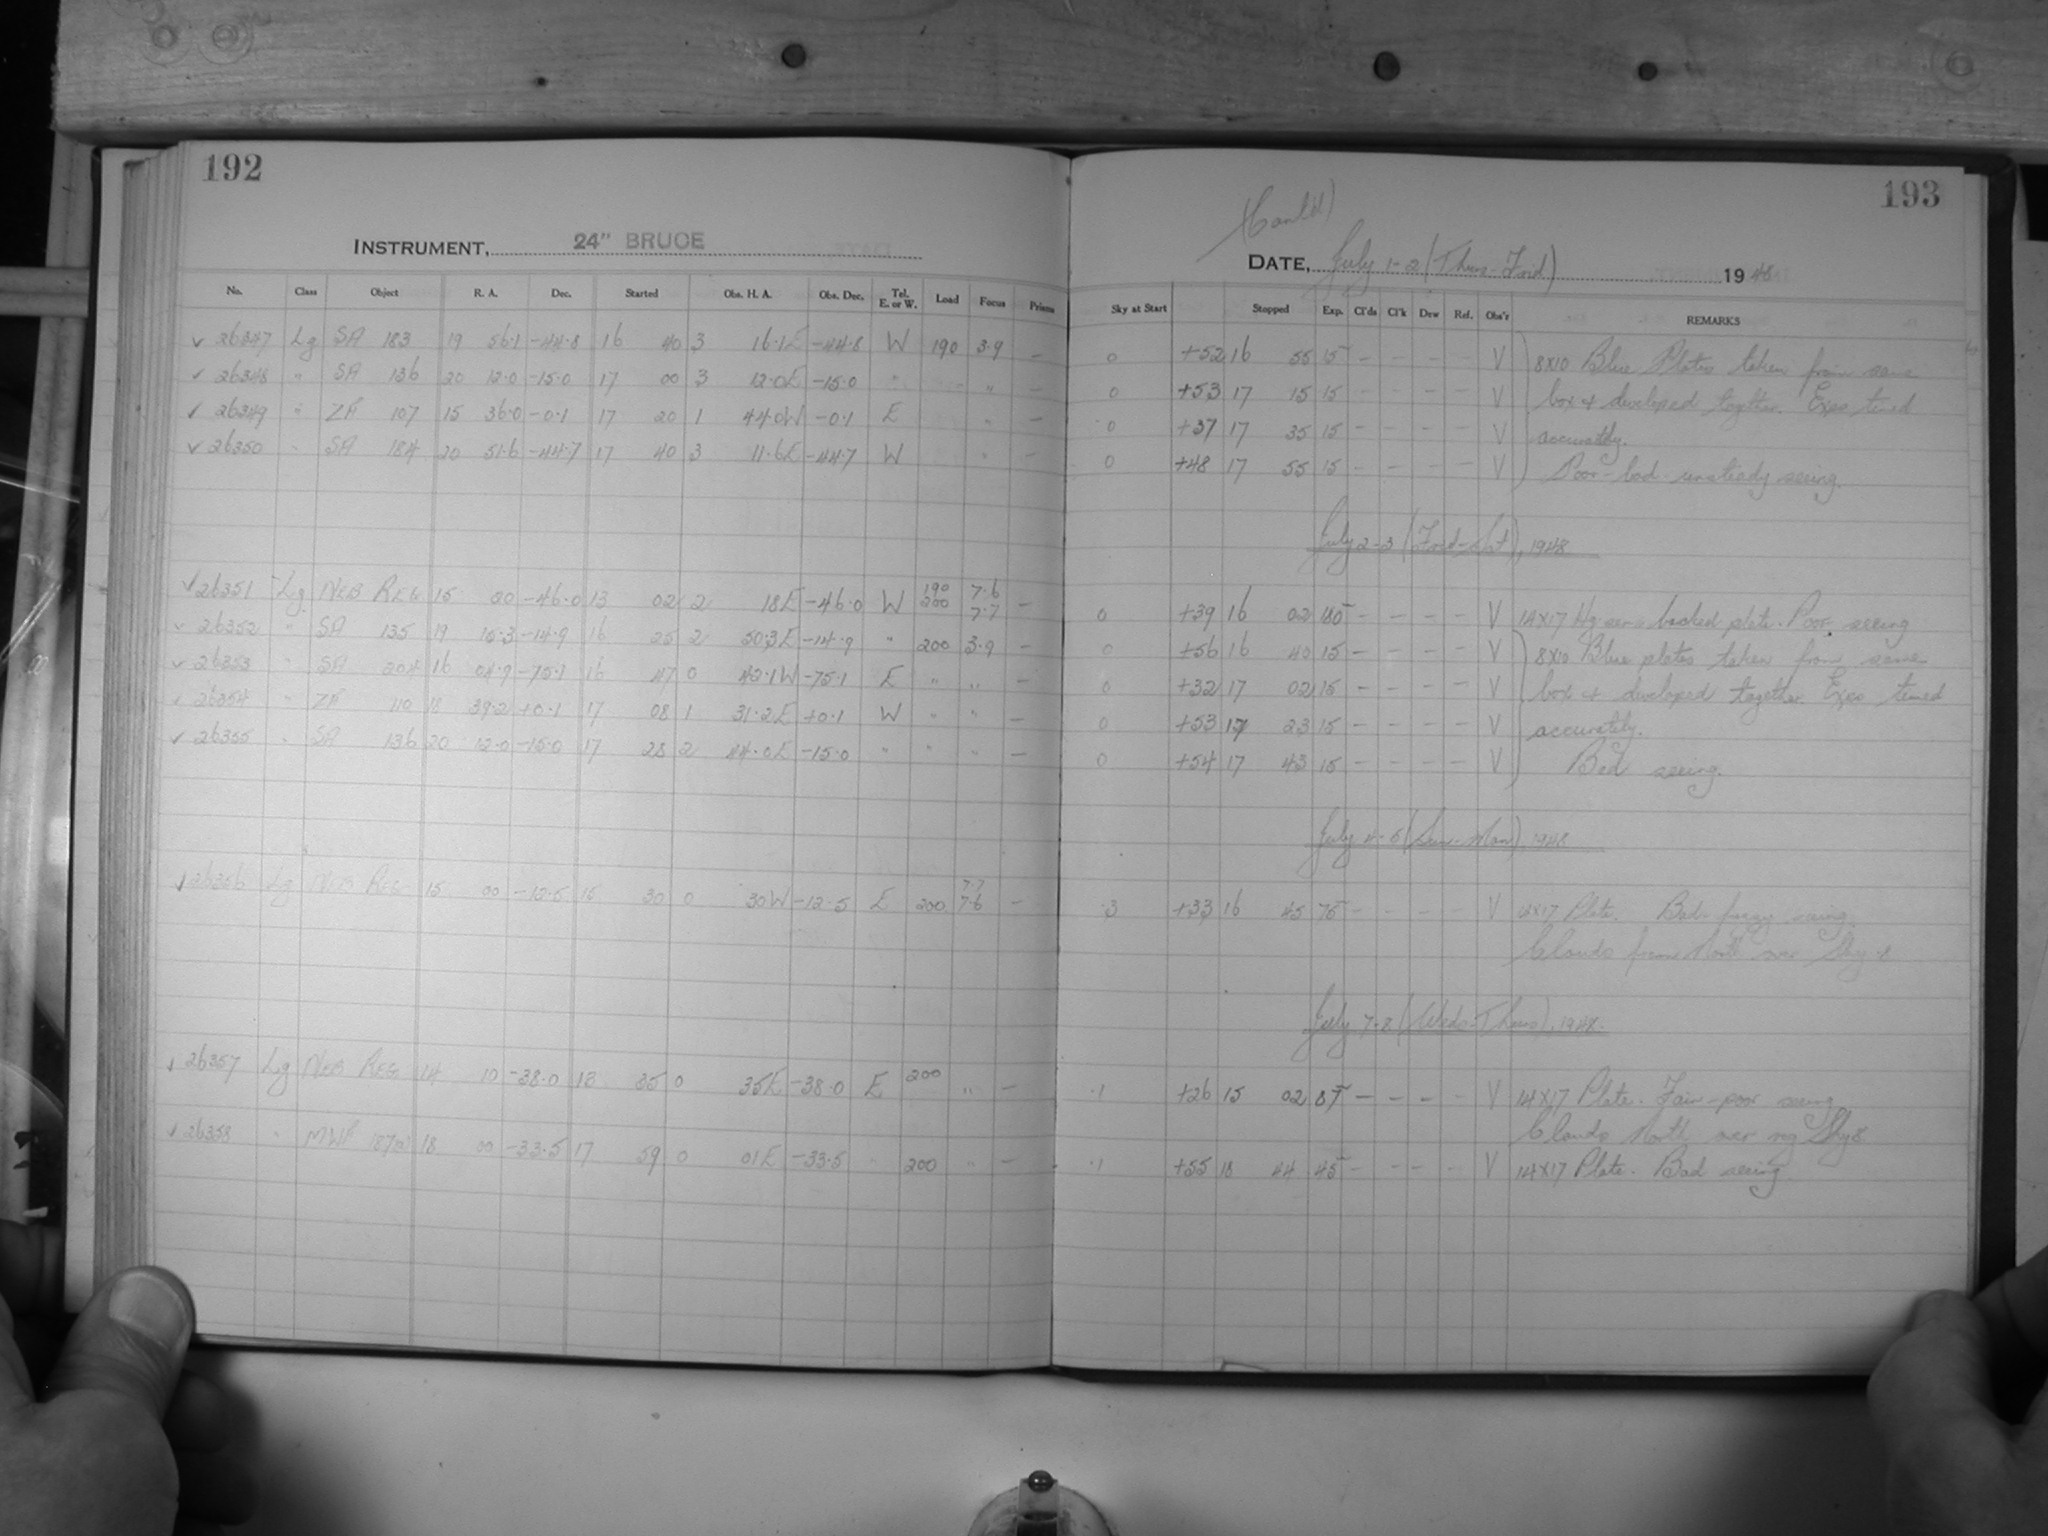 192
INSTRUMENT, 24" BRUCE
No. Class Object R. A. Dec. Started Obs. H. A. Obs. Dec. Tel. E. or W. Load Focus Prisms
✓ 26347 Lg SA 183 19 56.1 -44.8 16 40 3 16.1E -44.8 W 190 3.9 –
✓ 26348 " SA 136 20 12.0 -15.0 17 00 3 12.0E -15.0 " " –
✓ 26349 " ZA 107 15 36.0 -0.1 17 20 1 44.0W -0.1 E " –
✓ 26350 " SA 184 20 51.6 -44.7 17 40 3 11.6E -44.7 W " –
✓ 26351 Lg NEB REG 15 00 -46.0 13 02 2 18E -46.0 W 190 200 7.6 7.7 –
✓ 26352 " SA 135 19 15.3 -14.9 16 25 2 50.3E -14.9 " 200 3.9 –
✓ 26353 " SA 204 16 04.9 -75.1 16 47 0 42.1W -75.1 E " " –
✓ 26354 " ZA 110 18 39.2 +0.1 17 08 1 31.2E +0.1 W " " –
✓ 26355 " SA 136 20 12.0 -15.0 17 28 2 44.0E -15.0 " " " –
✓ 26356 Lg NEB REG 15 00 -12.5 15 30 0 30W -12.5 E 200 7.7 7.6 –
✓ 26357 Lg NEB REG 14 10 -38.0 13 35 0 35E -38.0 E 200 " –
✓ 26358 " MWF 18 00 -33.5 17 59 0 01E -33.5 " 200 " –
193
(Cont'd)
DATE, July 1-2 (Thurs-Frid) 1948
Sky at Start Stopped Exp. Cl'ds Cl'k Dew Ref. Obs'r REMARKS
0 +52 16 55 15 – – – – V 8x10 Blue Plates taken from same
0 +53 17 15 15 – – – – V box & developed together. Expo timed
0 +37 17 35 15 – – – – V accurately.
0 +48 17 55 15 – – – – V Poor-bad-unsteady seeing.
July 2-3 (Frid-Sat), 1948
0 +39 16 02 180 – – – – V 14x17 backed plate. Poor seeing
0 +56 16 40 15 – – – – V 8x10 Blue plates taken from same
0 +32 17 02 15 – – – – V box & developed together. Expo timed
0 +53 17 23 15 – – – – V accurately.
0 +54 17 43 15 – – – – V Bad seeing.
July 4-5 (Sun-Mon) 1948
.3 +33 16 45 75 – – – – V 14x17 Plate. Bad fuzzy seeing.
Clouds from North over Sky
July 7-8 (Weds-Thurs), 1948
.1 +26 15 02 87 – – – – V 14x17 Plate. Fair-poor seeing
Clouds North over
.1 +55 18 44 45 – – – – V 14x17 Plate. Bad seeing